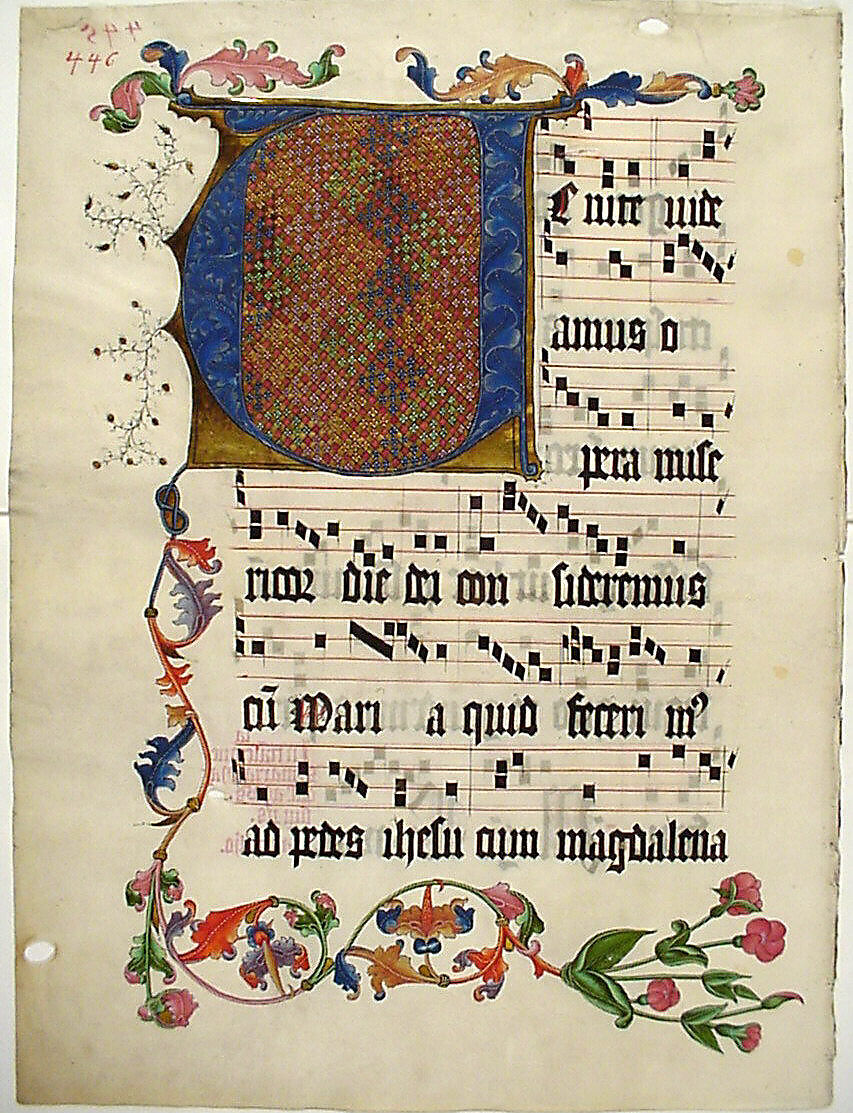 446
Uenite uide
amus o
pera mise
ricor die dei con sideremus
cū Mari a quid feceri m⁹
ad pedes ihesu cum magdalena